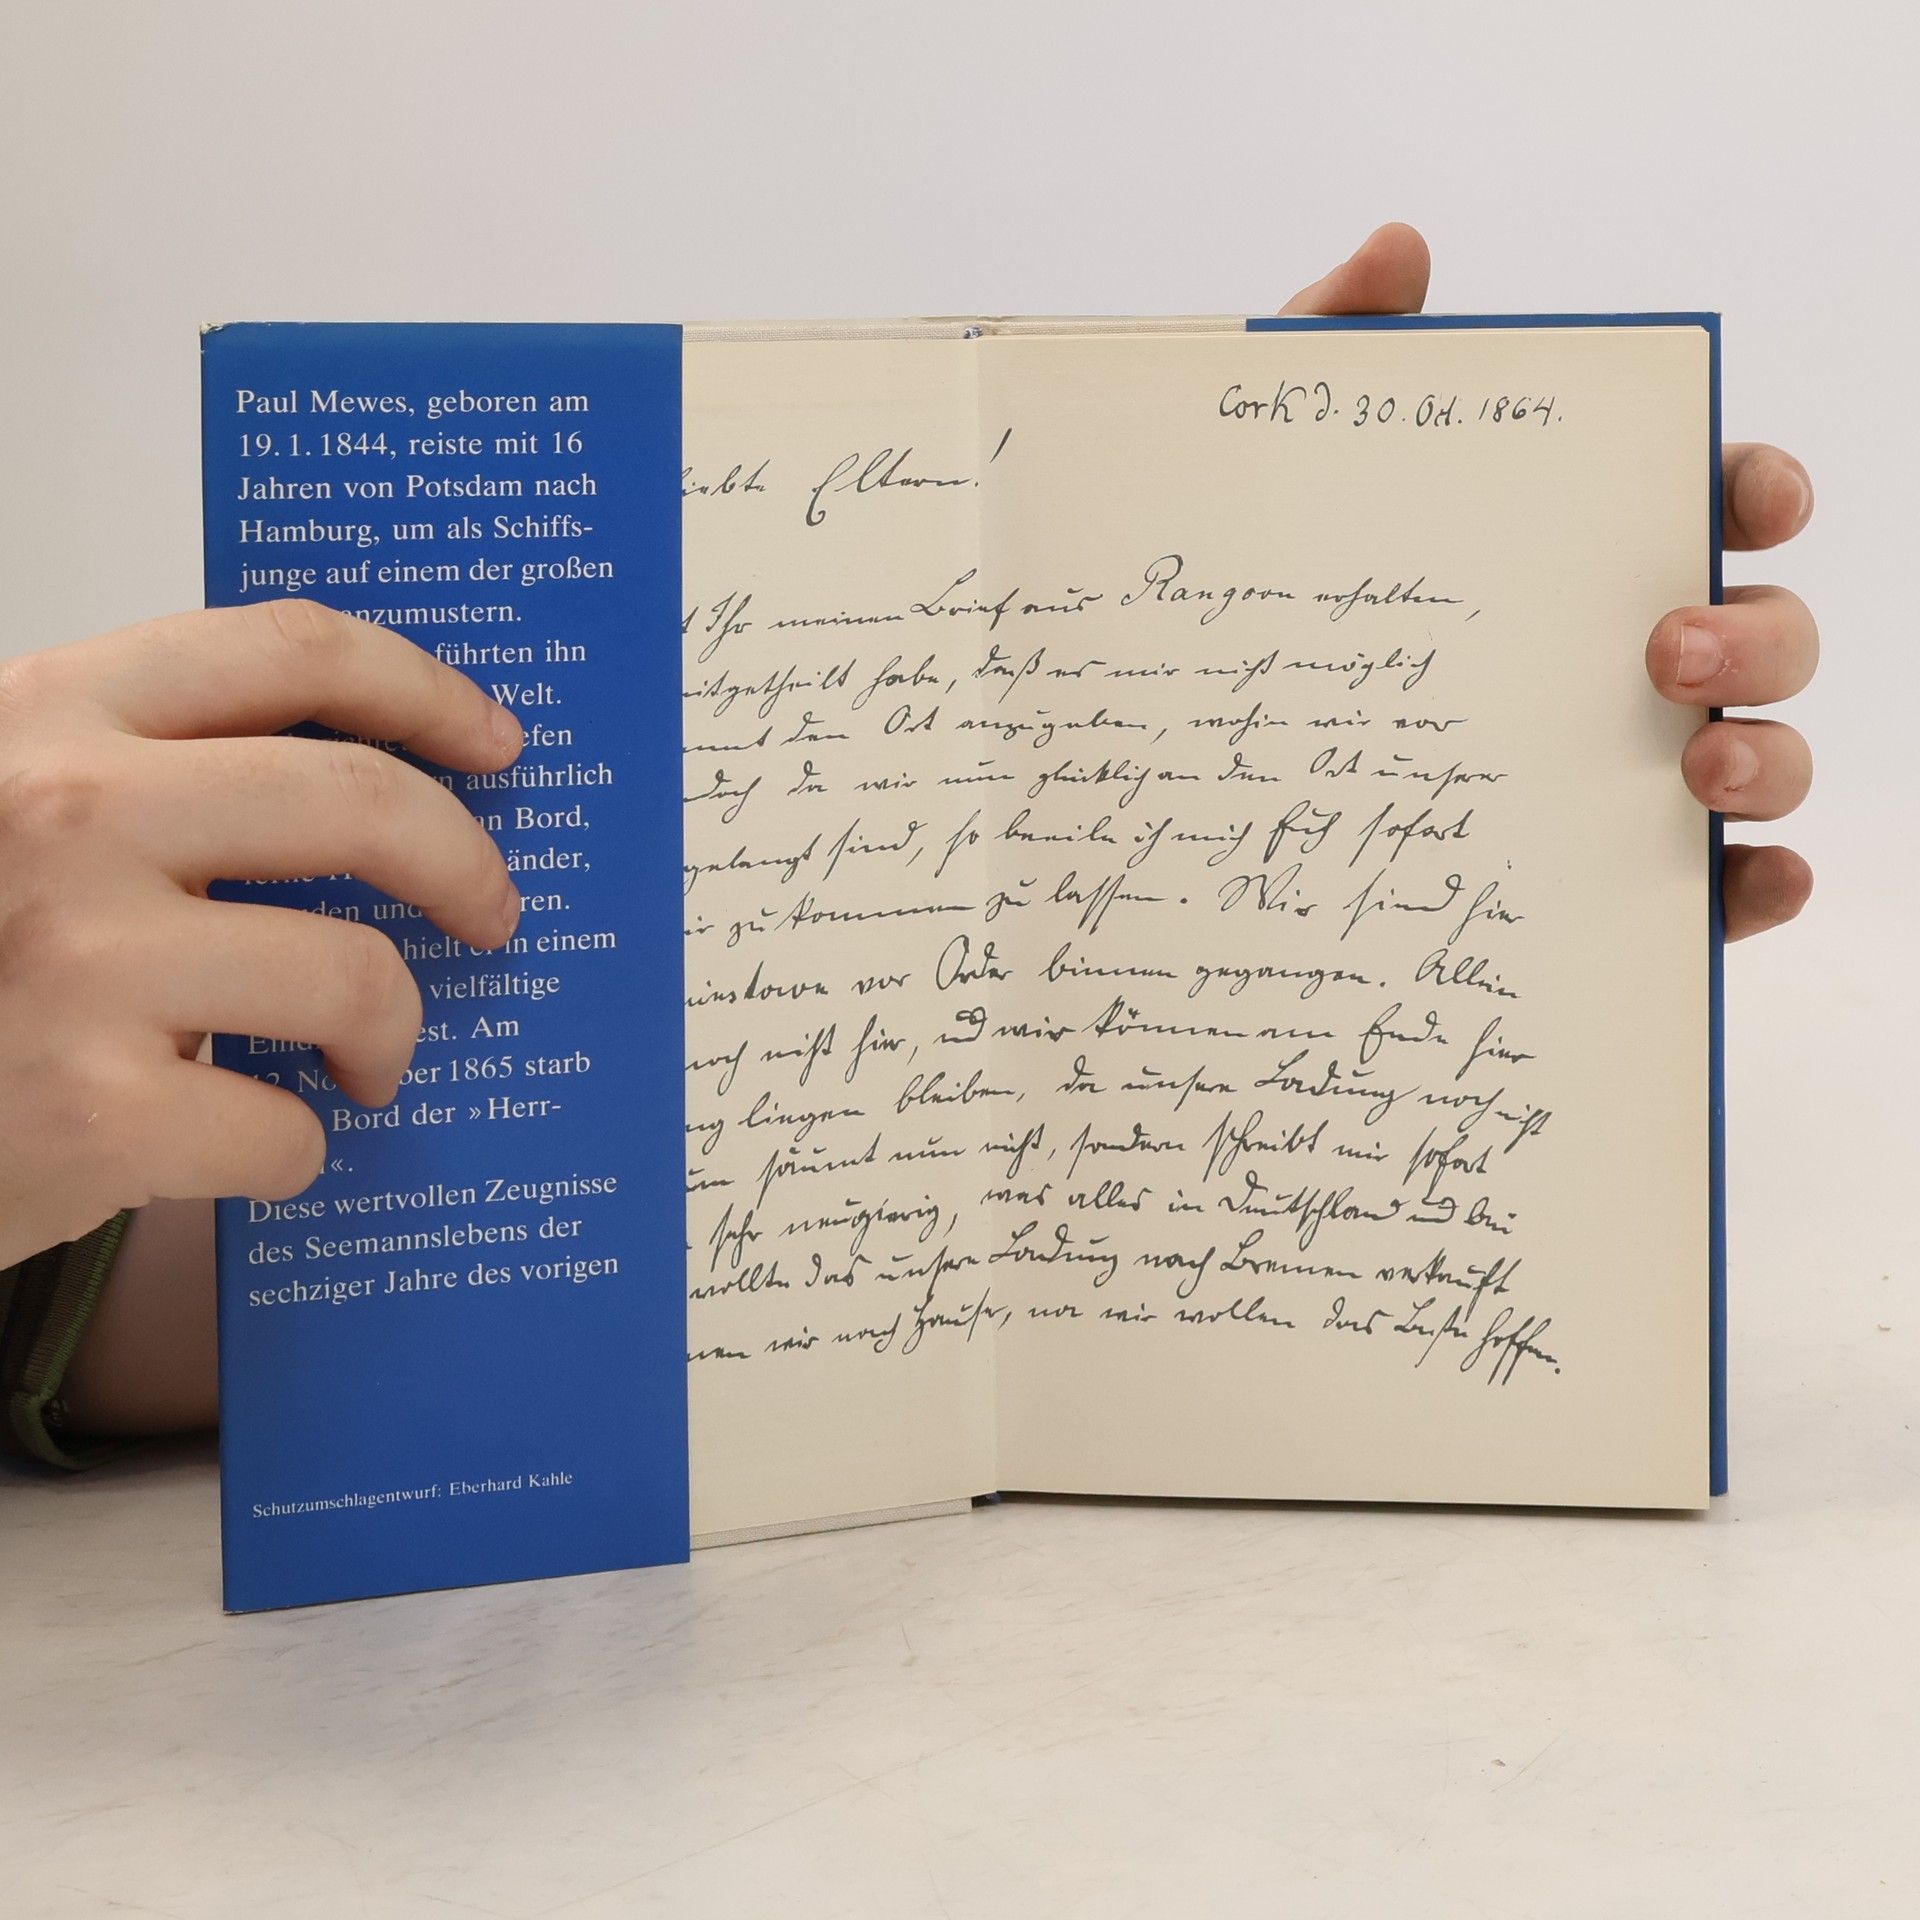 Paul Mewes, geboren am
19.1.1844, reiste mit 16
Jahren von Potsdam nach
Hamburg, um als Schiffs-
junge auf einem der großen
anzumustern.
führten ihn
Welt.
efen
ausführlich
an Bord,
änder,
den und ren.
hielt er in einem
vielfältige
est. Am
12. No ber 1865 starb
Bord der »Herr-
«.
Diese wertvollen Zeugnisse
des Seemannslebens der
sechziger Jahre des vorigen
Schutzumschlagentwurf: Eberhard Kahle
Cork d. 30. Oct. 1864.
liebte Eltern!
t Ihr meinen Brief aus Rangoon erhalten,
mitgetheilt habe, daß es mir nicht möglich
immt den Ort anzugeben, wohin wir vor
doch da wir nun glücklich an den Ort unserer
gelangt sind, so beeile ich mich Euch sofort
ir zu kommen zu lassen. Wir sind hier
instown vor Order binnen gegangen. Allein
noch nicht hier, und wir können am Ende hier
ng liegen bleiben, da unsere Ladung noch nicht
um säumt nun nicht, sondern schreibt mir sofort
sehr neugierig, was alles in Deutschland und bei
wollte das unsere Ladung nach Bremen verkauft
men wir nach Hause, na wir wollen das Beste hoffen.